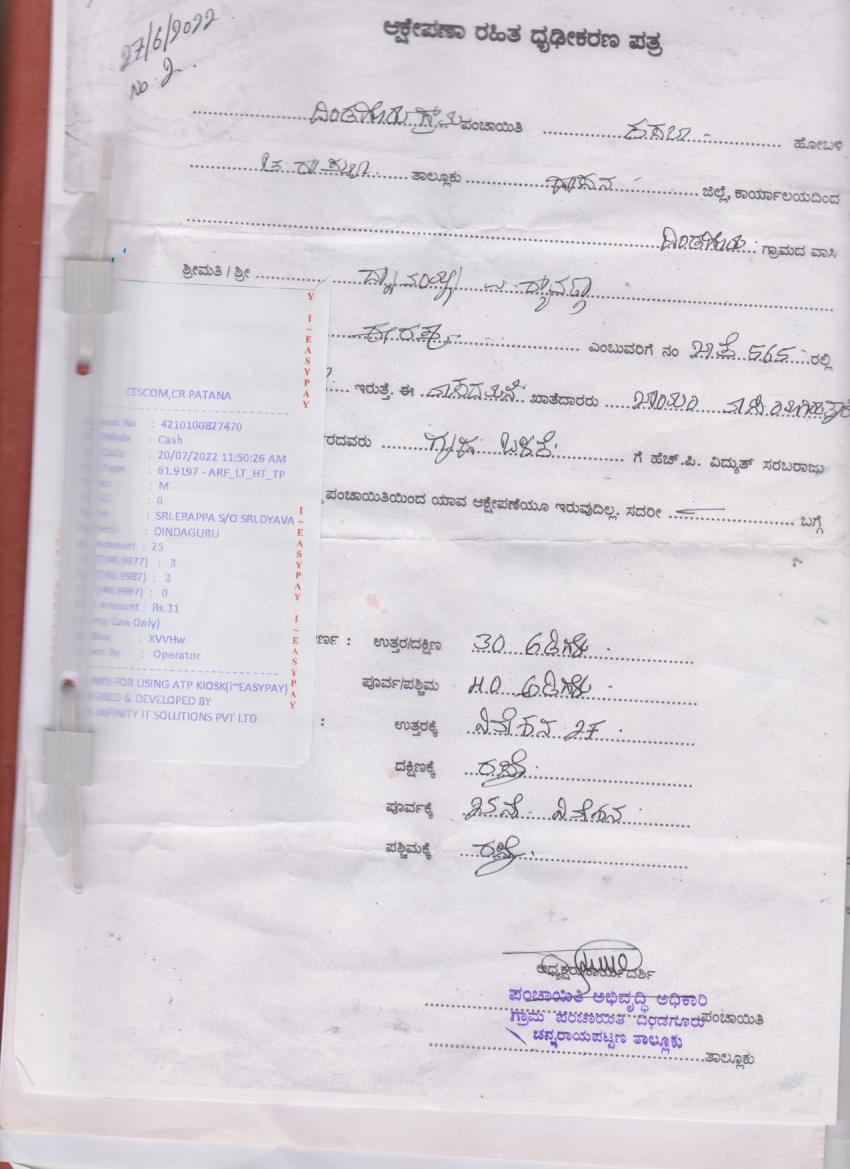 27/6/2022
No 2.
ಆಕ್ಷೇಪಣಾ ರಹಿತ ಧೃಢೀಕರಣ ಪತ್ರ
ದಿಂಡಗೂರು ಗ್ರಾಮ ಪಂಚಾಯಿತಿ ಕಸಬಾ ಹೋಬಳಿ
ತಾಲ್ಲೂಕು ಹಾಸನ ಜಿಲ್ಲೆ, ಕಾರ್ಯಾಲಯದಿಂದ
ದಿಂಡಗೂರು ಗ್ರಾಮದ ವಾಸಿ
ಶ್ರೀಮತಿ / ಶ್ರೀ
ಈರಪ್ಪ ಎಂಬುವರಿಗೆ ನಂ 565 ರಲ್ಲಿ
ಇರುತ್ತೆ. ಈ ವಾಸದ ಮನೆ ಖಾತೆದಾರರು
ರದವರು ಗೃಹ ಬಳಕೆ ಗೆ ಹೆಚ್.ಪಿ. ವಿದ್ಯುತ್ ಸರಬರಾಜು
ಪಂಚಾಯಿತಿಯಿಂದ ಯಾವ ಆಕ್ಷೇಪಣೆಯೂ ಇರುವುದಿಲ್ಲ. ಸದರೀ ಬಗ್ಗೆ
CESCOM,CR PATANA
No : 4210100827470
: Cash
: 20/07/2022 11:50:26 AM
: 61.9197 - ARF_LT_HT_TP
: M
: 0
: SRI.ERAPPA S/O SRI.DYAVA
: DINDAGURU
Amount : 25
9977) : 3
9987) : 3
9967) : 0
Amount : Rs.31
Only)
: XVVHw
By : Operator
FOR USING ATP KIOSK(i~EASYPAY)
& DEVELOPED BY
INFINITY IT SOLUTIONS PVT LTD
Y I~EASYPAY
I~EASYPAY I~EASYPAY
ಉತ್ತರ/ದಕ್ಷಿಣ 30 ಅಡಿಗಳು
ಪೂರ್ವ/ಪಶ್ಚಿಮ 40 ಅಡಿಗಳು
ಉತ್ತರಕ್ಕೆ ನಿವೇಶನ 27
ದಕ್ಷಿಣಕ್ಕೆ ರಸ್ತೆ
ಪೂರ್ವಕ್ಕೆ 25ನೇ ನಿವೇಶನ
ಪಶ್ಚಿಮಕ್ಕೆ ರಸ್ತೆ
ಅಧ್ಯಕ್ಷರು/ಕಾರ್ಯದರ್ಶಿ
ಪಂಚಾಯಿತಿ ಅಭಿವೃದ್ಧಿ ಅಧಿಕಾರಿ
ಗ್ರಾಮ ಪಂಚಾಯಿತಿ ದಿಂಡಗೂರು ಪಂಚಾಯಿತಿ
ಚನ್ನರಾಯಪಟ್ಟಣ ತಾಲ್ಲೂಕು
ತಾಲ್ಲೂಕು